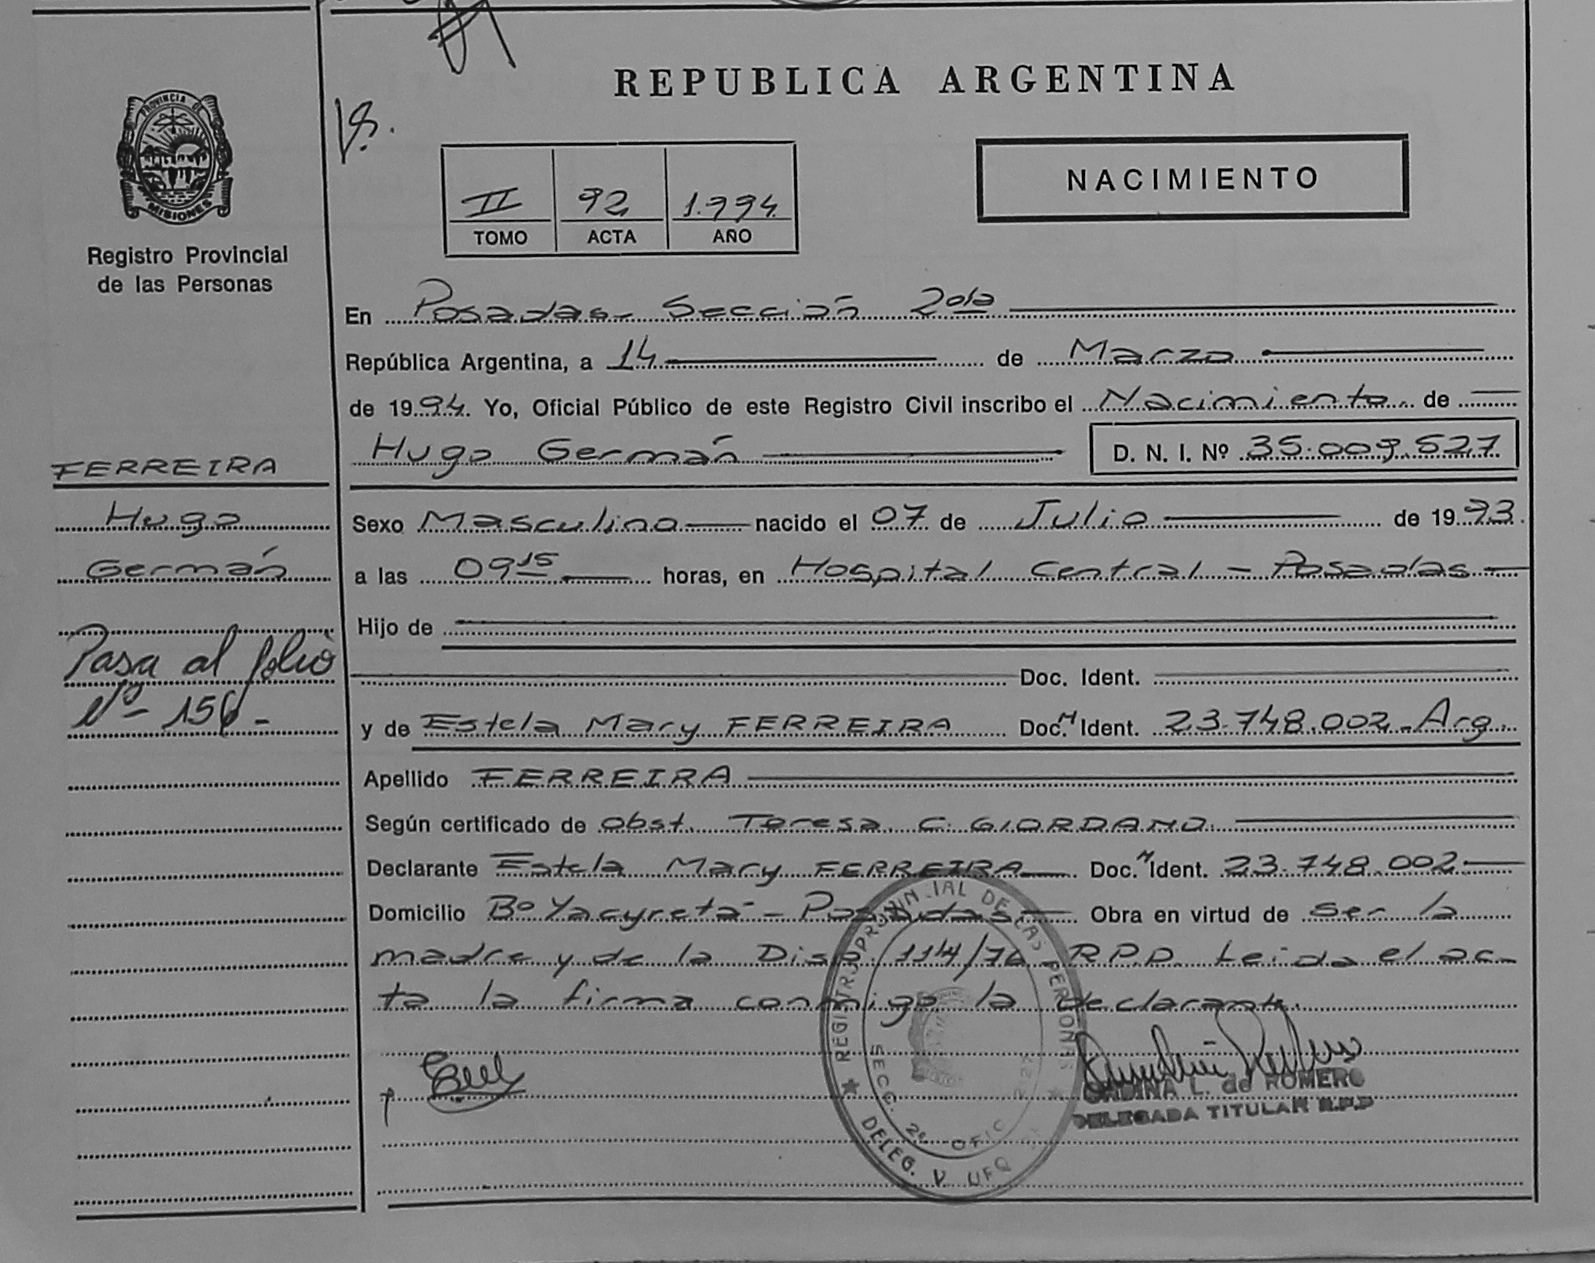 REPUBLICA ARGENTINA
PROVINCIA DE
MISIONES
Registro Provincial
de las Personas
II 92 1.994
TOMO ACTA AÑO
NACIMIENTO
En Posadas- Sección 2da
República Argentina, a 14 de Marzo
de 1994. Yo, Oficial Público de este Registro Civil inscribo el Nacimiento de
Hugo Germán D. N. I. Nº 35.009.527
FERREIRA
Hugo
Germán
Pasa al folio
Nº- 156-
Sexo Masculino nacido el 07 de Julio de 1993.
a las 09 15 horas, en Hospital Central - Posadas
Hijo de
Doc. Ident.
y de Estela Mary FERREIRA Doc. Ident. 23.748.002-Arg.
Apellido FERREIRA
Según certificado de Obst. Teresa C. GIORDANO.
Declarante Estela Mary FERREIRA Doc. Ident. 23.748.002
Domicilio Bº Yacyretá - Posadas Obra en virtud de ser la
madre y de la Disp. 114/76 R.P.P. Leida el ac-
ta la firma conmigo la declarante.
L. de ROMERO
DELEGADA TITULAR R.P.P
REGISTRO PROVINCIAL DE LAS PERSONAS
SECC. 2ª OFIC.
DELEG. V